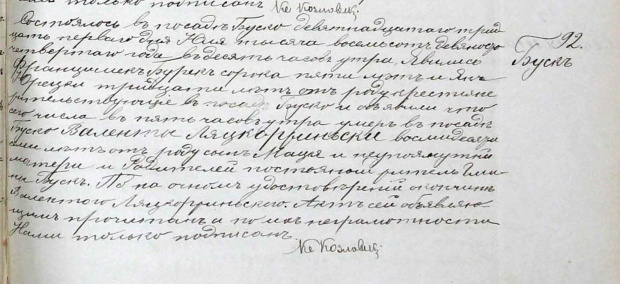 только подписан
Кс Козловиц
Состоялось въ посадѣ Буско девятнадцатаго трид
цать перваго дня Мая тысяча восемьсотъ девяносто
четвертаго года въ десять часовъ утра, Явились
Францишекъ Бурекъ сорока пяти лѣтъ и Янъ
тридцати лѣтъ отъ роду крестяне
жительствующіе въ посадѣ Буско и обявили что
сего числа въ пять часовъ утра умеръ въ посадѣ
Буско Валенты восмидесяти
лѣтъ отъ роду сынъ Мацѣя и неупомянутой
матери и Родителей постоянный житель Гми
ны Бускъ. По на очномъ удостовѣреніи окончины
Валентого Актъ сей обявляю
щимъ прочитанъ и по ихъ неграмотности
Нами только подписанъ
Кс Козловиц
92.
Бускъ